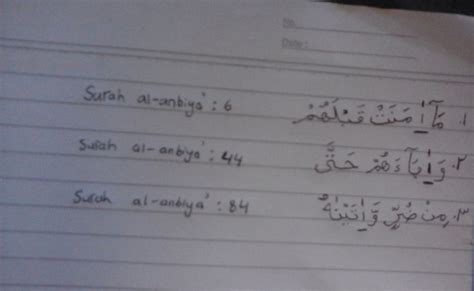 No.
Date :
Surah al-anbiya' : 6 ١. مَآ اٰمَنَتْ قَبْلَهُمْ
Surah al-anbiya' : 44 ٢. وَاٰبَآءَهُمْ حَتَّى
Surah al-anbiya' : 84 ٣. مِنْ ضُرٍّ وَّاٰتَيْنٰهُ